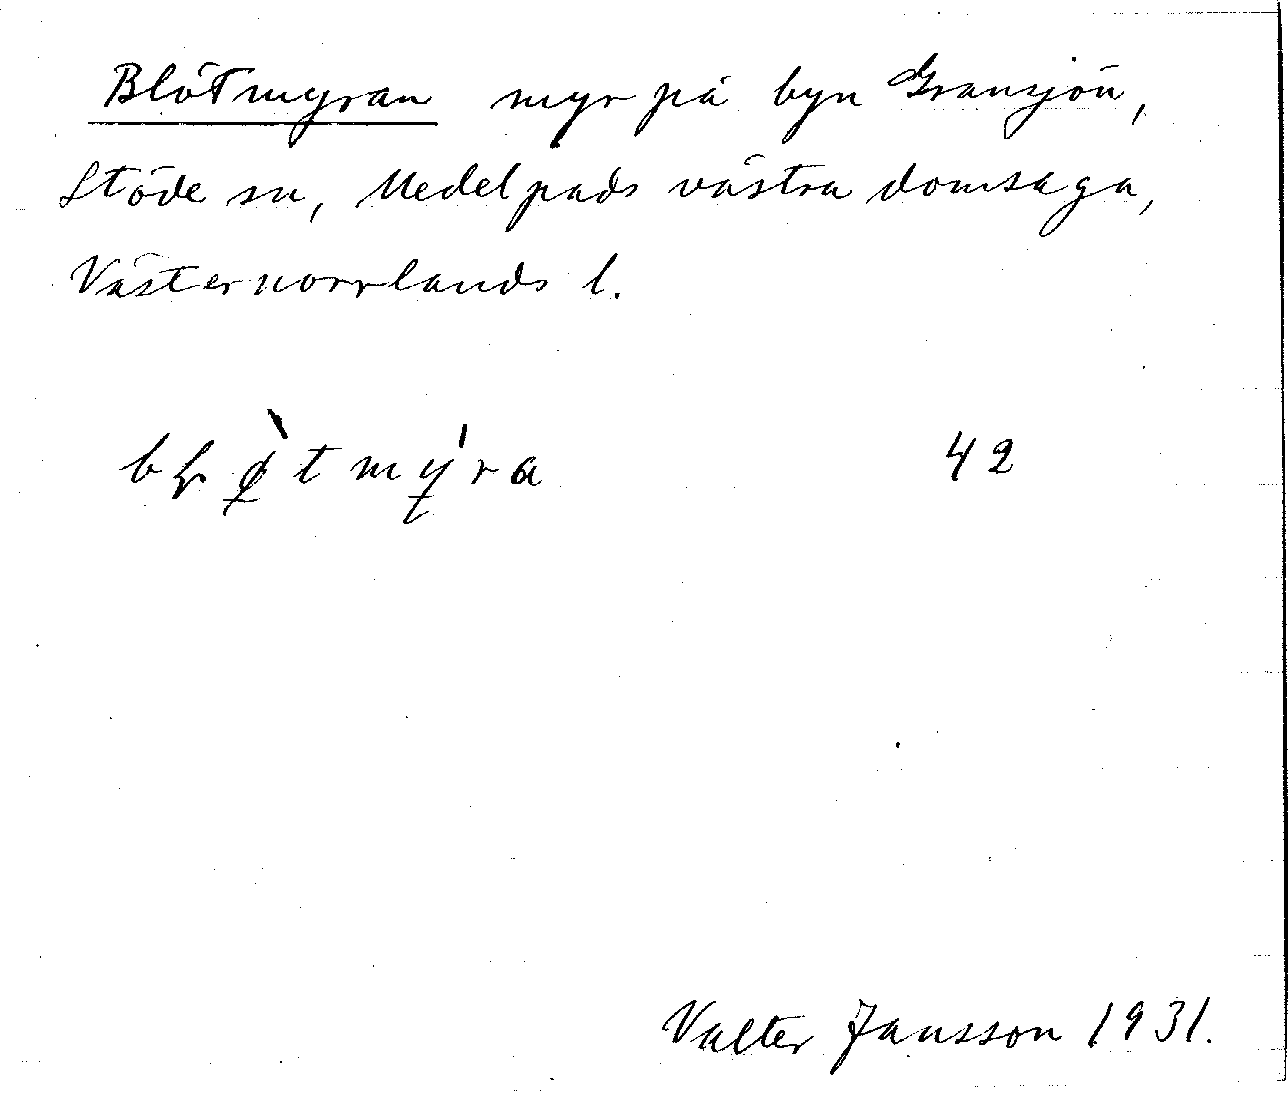 Blötmyran myr på byn Gransjön,
Stöde sn, Medelpads västra domsaga,
Västernorrlands l.
bḷø̀tmýra 42
Valter Jansson 1931.